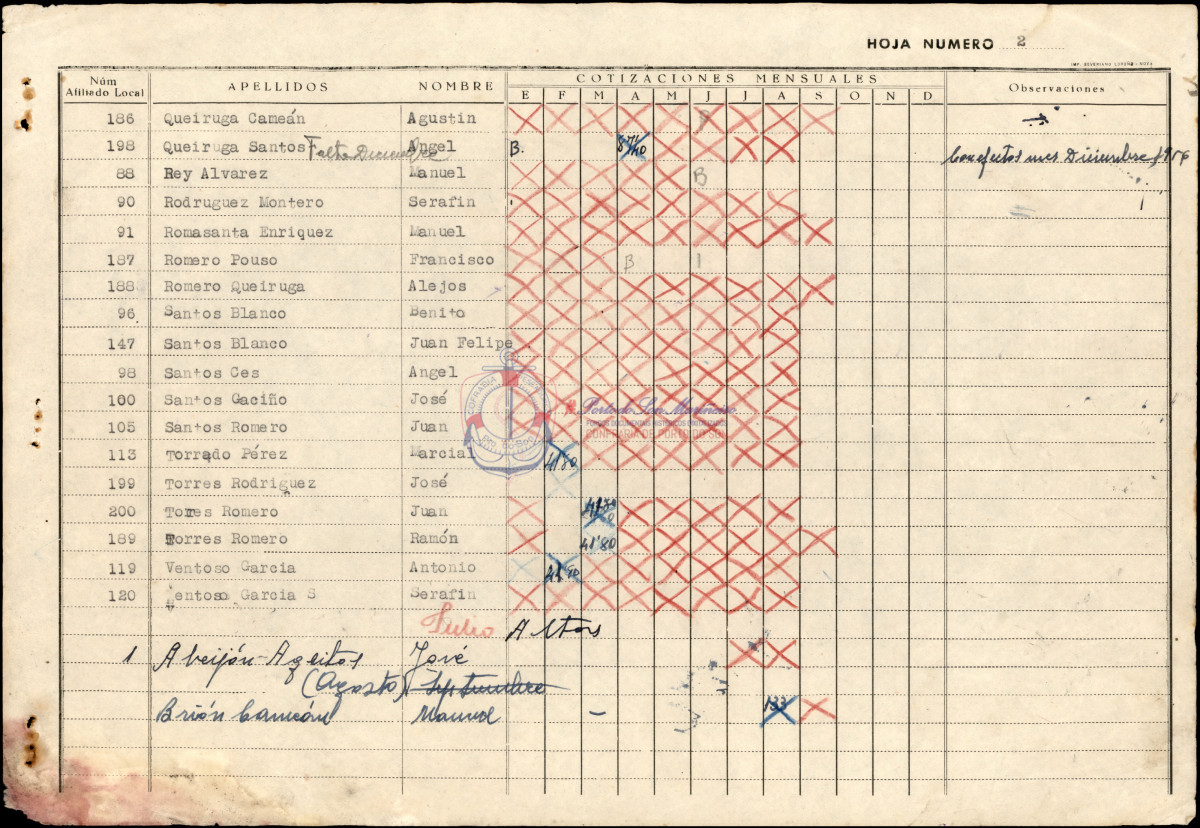 HOJA NUMERO 2
Núm Afiliado Local APELLIDOS NOMBRE COTIZACIONES MENSUALES Observaciones
E F M A M J J A S O N D
186 Queiruga Cameán Agustin
198 Queiruga Santos Falta Diciembre Angel B. 87'40 Con efectos mes Diciembre 1956
88 Rey Alvarez Manuel B
90 Rodruguez Montero Serafin
91 Romasanta Enriquez Manuel
187 Romero Pouso Francisco B 1
188 Romero Queiruga Alejos
96 Santos Blanco Benito
147 Santos Blanco Juan Felipe
98 Santos Ces Angel
100 Santos Gaciño José
105 Santos Romero Juan
113 Torrado Pérez Marcial 41'80
199 Torres Rodriguez José
200 Torres Romero Juan
189 Torres Romero Ramón 41'80
119 Ventoso Garcia Antonio
120 Ventoso Garcia S Serafin
Julio Altas
1 Abeijón Ageitos José
(Agosto) Septiembre
Brión Cameán Manuel - 133
Porto do Son Mariñeiro
CONFRARÍA DE PORTO DO SON